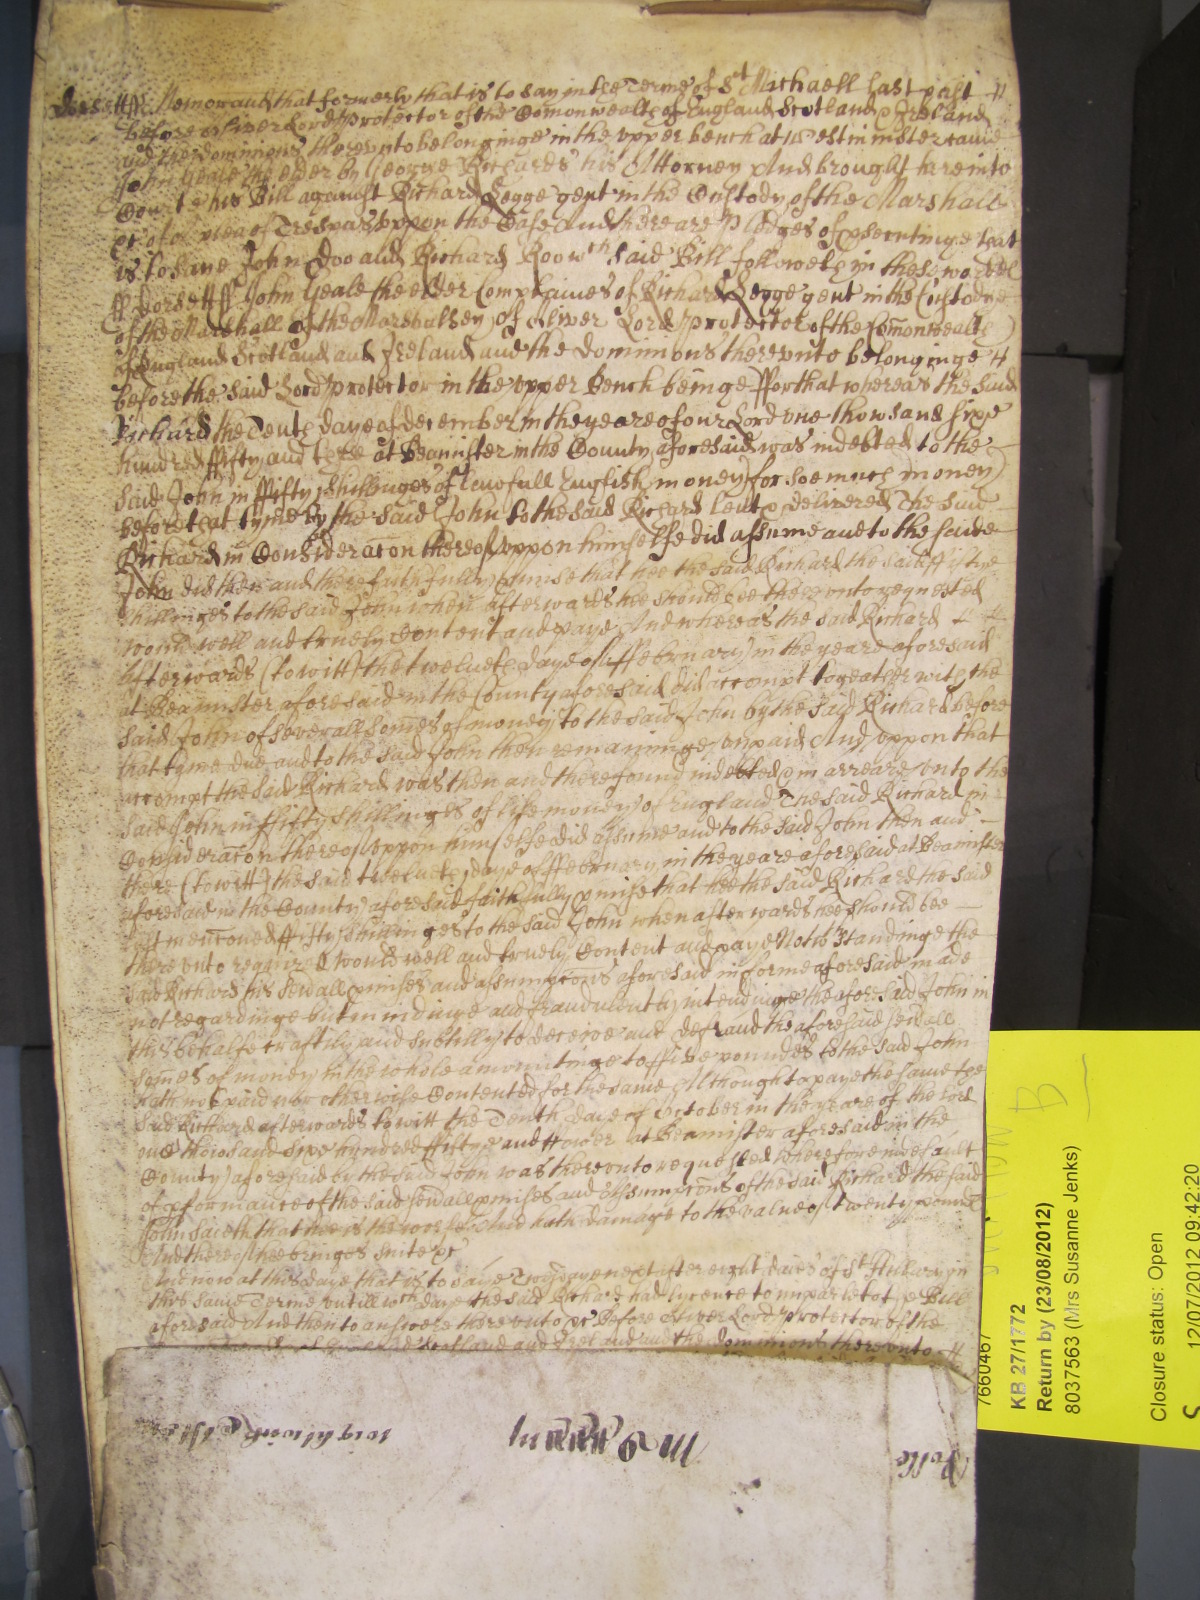 dorsett ss Memorand that formerly that is to say in the Terme of St Michaell last past
before Oliver Lord Protector of the Comonwealth of England Scotland & Ireland
and the dominions thereunto belonginge in the upper bench at Westminster came
John Geale the elder by George Richards his Attorney And brought here into
Court his Bill against Richard Legge gent in the Custody of the Marshall
&c of a plea of Trespas uppon the Case And there are pledges of prosecutinge that
is to save John Doo and Richard Roo wch said Bill followeth in these wordes
ss Dorsett ss John Geale the elder Complaines of Richard Legge gent in the Custodye
of the Marshall of the Marshalsey of Oliver Lord Protector of the Comonwealth
of England Scotland and Ireland and the dominions thereunto belonginge
before the said Lord Protector in the upper Bench beinge ffor that whereas the said
Richard the Tenth daye of december in the yeare of our Lord one thowsand sixe
hundred ffifty and three at Beamister in the County aforesaid was indebted to the
said John in ffifty shillinges of lawfull English money for soe much money
before that tyme by the said John to the said Richard lent & delivered The said
Richard in Consideracon thereof uppon himselfe did assume and to the saide
John did then and there faithfully pmise that hee the said Richard the said ffiftye
shillinges to the said John when afterwards hee should bee thereunto requested
would well and truely Content and paye And whereas the said Richard
Afterwards (to witt) the twelveth daye of ffebruary in the yeare aforesaid
at Beamister aforesaid in the County aforesaid did accompt togeather with the
said John of severall somes of money to the said John by the said Richard before
that tyme due and to the said John then remaininge unpaid And uppon that
accompt the said Richard was then and there found indebted & in arreare unto the
said John in ffifty shillinges of like money of England The said Richard in
Consideracon thereof uppon himselfe did assume and to the said John then and
there (to witt) the said twelveth daye of ffebruary in the yeare aforesaid at Beamister
aforesaid in the County aforesaid faithfully pmise that hee the said Richard the said
last mencioned ffifty shillinges to the said John when afterwards hee should bee
thereunto required would well and truely Content and paye Notwthstandinge the
said Richard his sevall pmises and assumpcons aforesaid in forme aforesaid made
not regardinge but mindinge and fraudulently intendinge the aforesaid John in
this behalfe craftily and subtilly to deceive and defraud the aforesaid sevall
somes of money in the whole amountinge to ffive poundes to the said John
hath not paid nor otherwise Contented for the same Although to paye the same the
said Richard afterwards to witt the Tenth daye of October in the yeare of the lord
one thowsand sixe hundred ffiftye and ffower at Beamister aforesaid in the
County aforesaid by the said John was thereunto requested wherefore in default
of pformance of the said sevall pmises and assumpcons of the said Richard the said
John saieth that hee is the worse And hath damage to the value of twenty pounds
And thereof hee bringes suite &c
And now at this daye that is to saye next after eight daies of St Hillary in
this same Terme untill wch daye the said Richard had lycence to imparle to the Bill
aforesaid And then to answere thereunto &c Before Oliver Lord Protector of the
Scotland and Ireland and the dominions thereunto
7660467
KB 27/1772
Return by (23/08/2012)
8037563 (Mrs Susanne Jenks)
Closure status: Open
12/07/2012 09:42:20